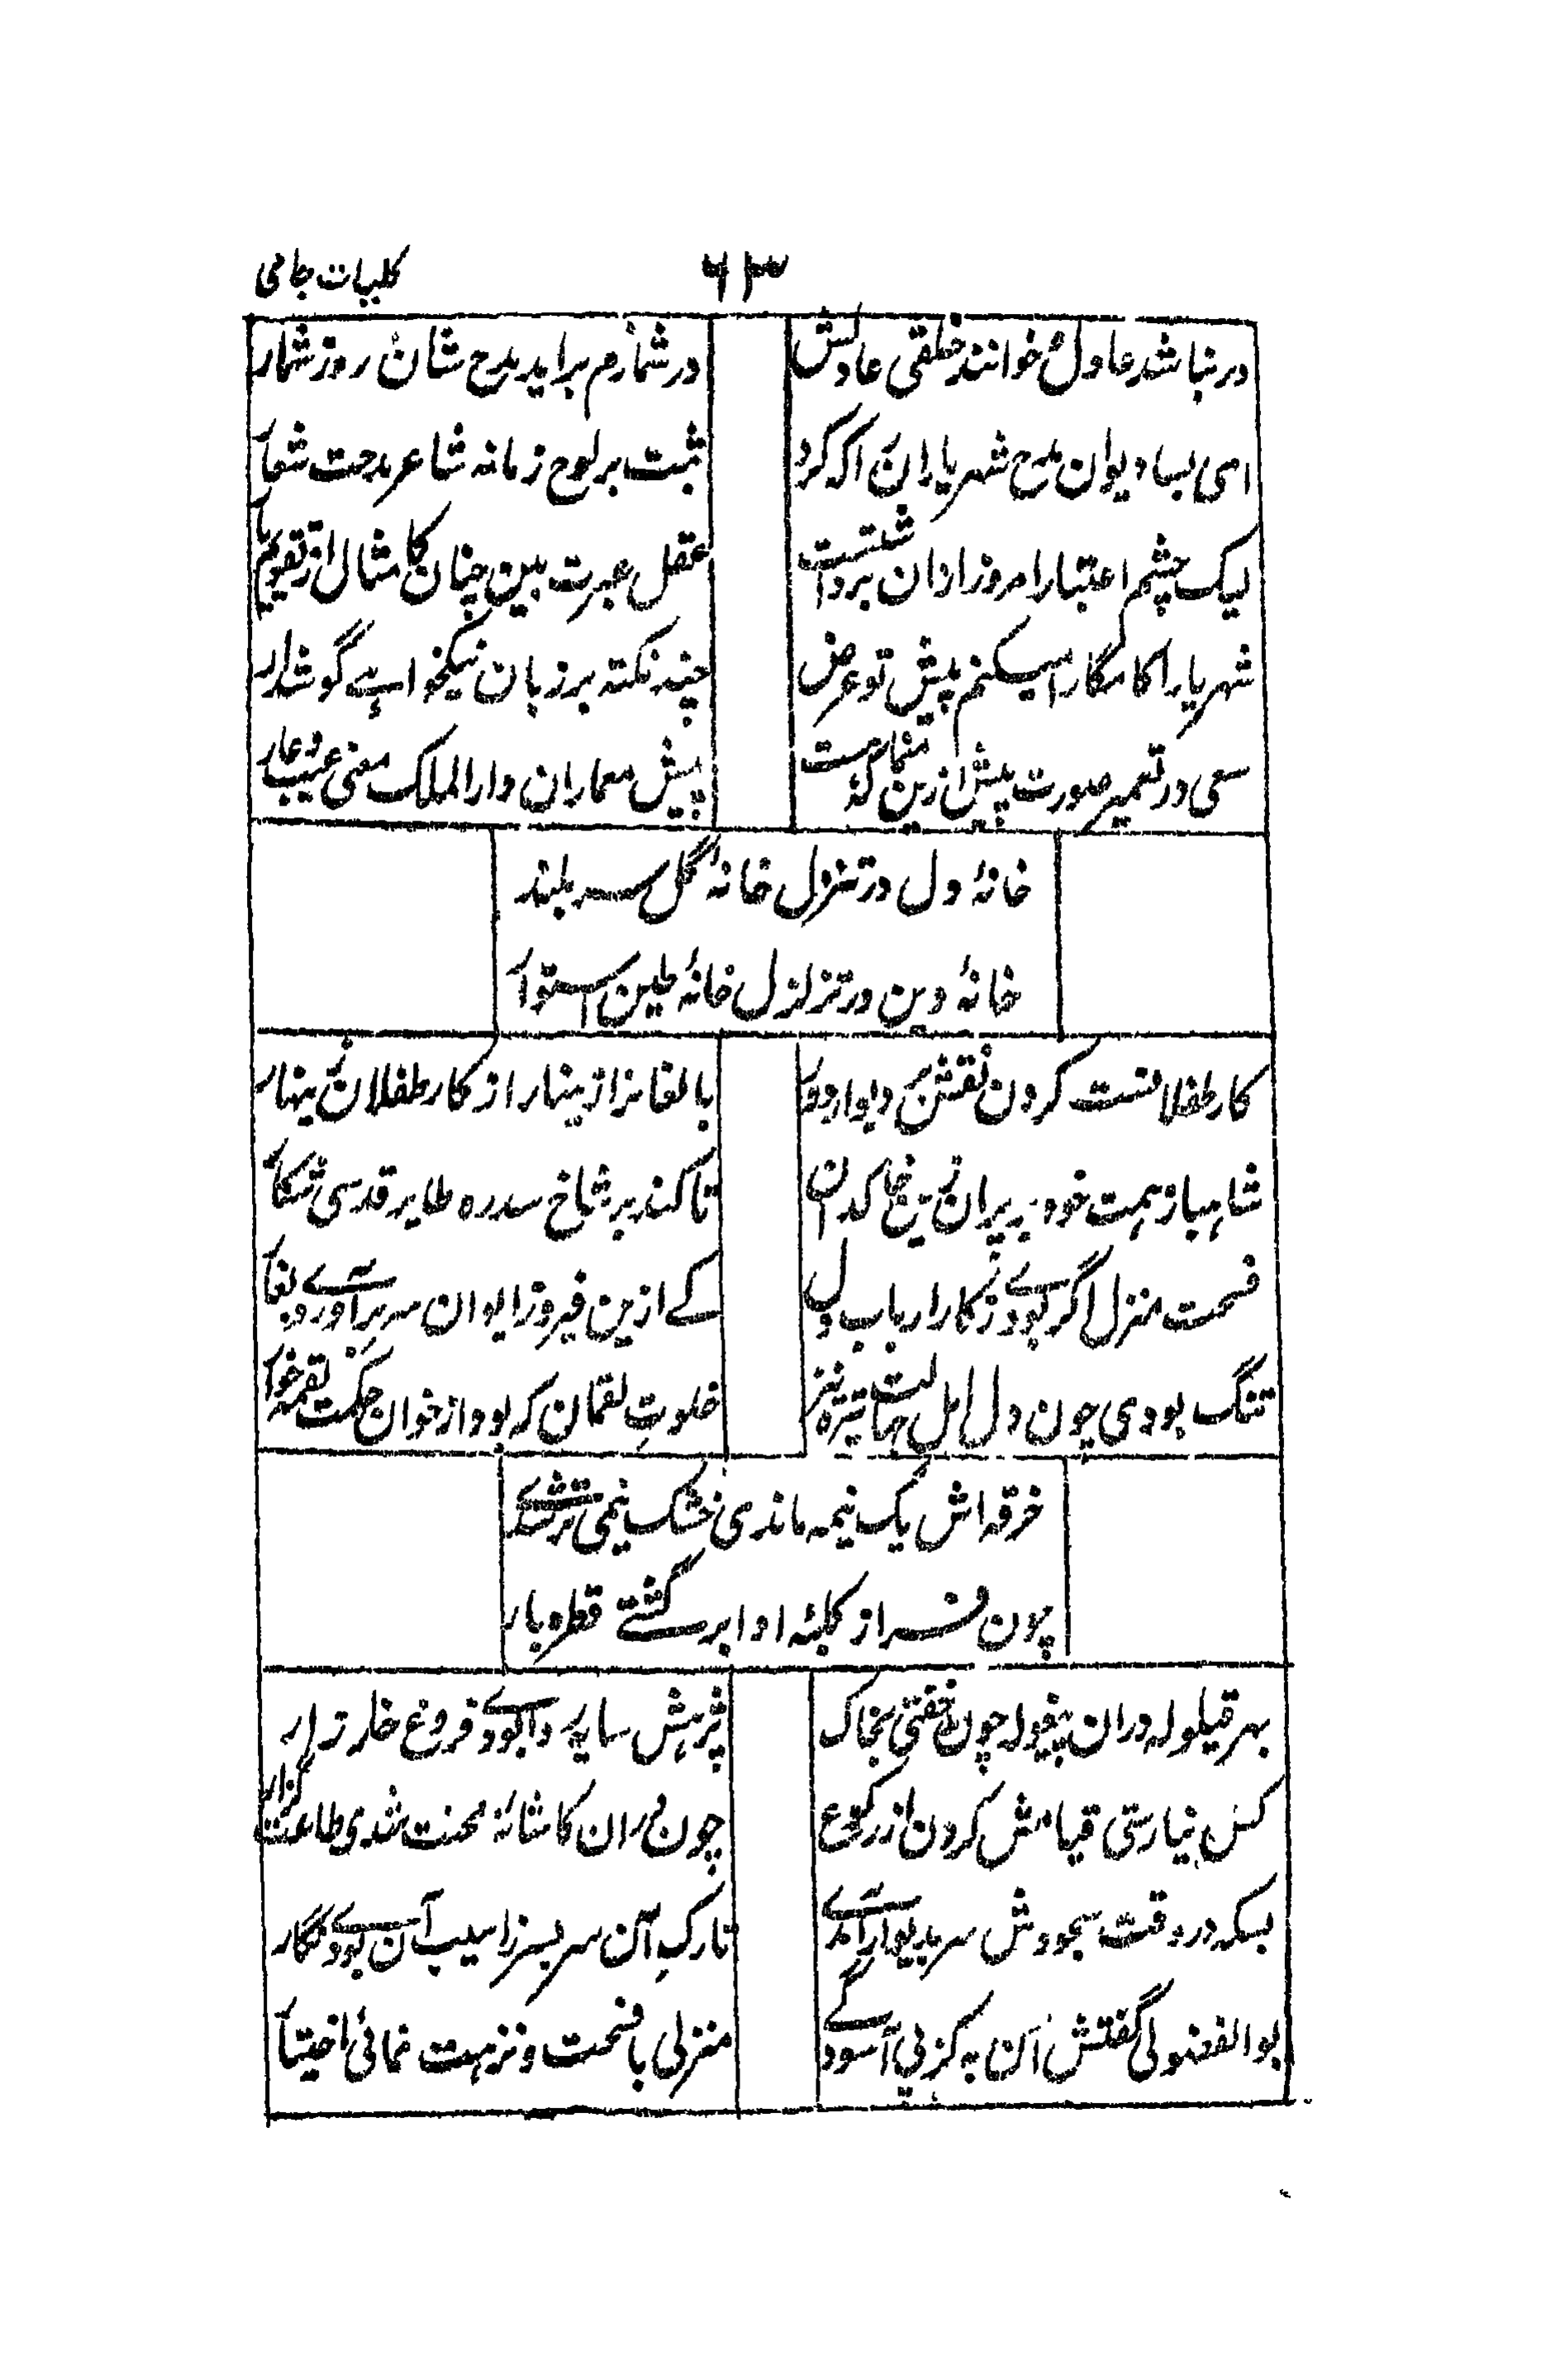 کلیات جامی
۶۱۳
ور نباشد عادل و خوانند خلقی عادلش
در شمارم برایید مدح شان روز شمار
ای بسا دیوان مدح شهریاران را که کرد
ثبت بر لوح زمانه شاعر مدحت شعار
لیک چشم اعتبار امروز ازان برداشتست
عقل عبرت بین چنان کامثال از تقویم پار
شهریارا کامگارا میکنم پیش تو عرض
چند نکته بر زبان نیکخواهے گوشدار
سعی در تعمیر صورت پیش ازین کن
پیش معماران دار الملک معنی عیب و عار
خانهٔ دل در تنزل خانهٔ گل سر بلند
خانهٔ دین در تزلزل خانهٔ طین استوار
کار طفلانست کردن نقش بر دیوار و در
بالغانرا زینهار از کار طفلان زینهار
شاهباز همت خود به پران زین خاکدان
تا کند بر شاخ سدره طایر قدسی شکار
فسحت منزل اگر بودے ز کار ارباب دل
کے ازین فیروز ایوان سر برآوردے بغار
تنگ بودی چون دل اهل جهالت تیره نیز
خلوتِ لقمان که بود از خوان حکمت لقمه خوار
خرقه اش یک نیمه ماندی خشک نیمی تر شدے
چون فراز کلبهٔ او ابر گشتے قطره بار
بهر قیلوله دران بیغوله چون خفتی بخاک
نیم هش سایه بودے و فروغ خار زار
کس نیارستی قیامش کردن از رکوع
چون دران کاشانهٔ محنت شدی طاعت گزار
بسکه در وقت سجودش سر بدیوار آمدے
تارکِ آن سر بسر زاسیب آن بودے فگار
بوالفضولی گفتش آن به کز پی آسودگے
منزلی با فسحت و نزهت نمائی اختیار